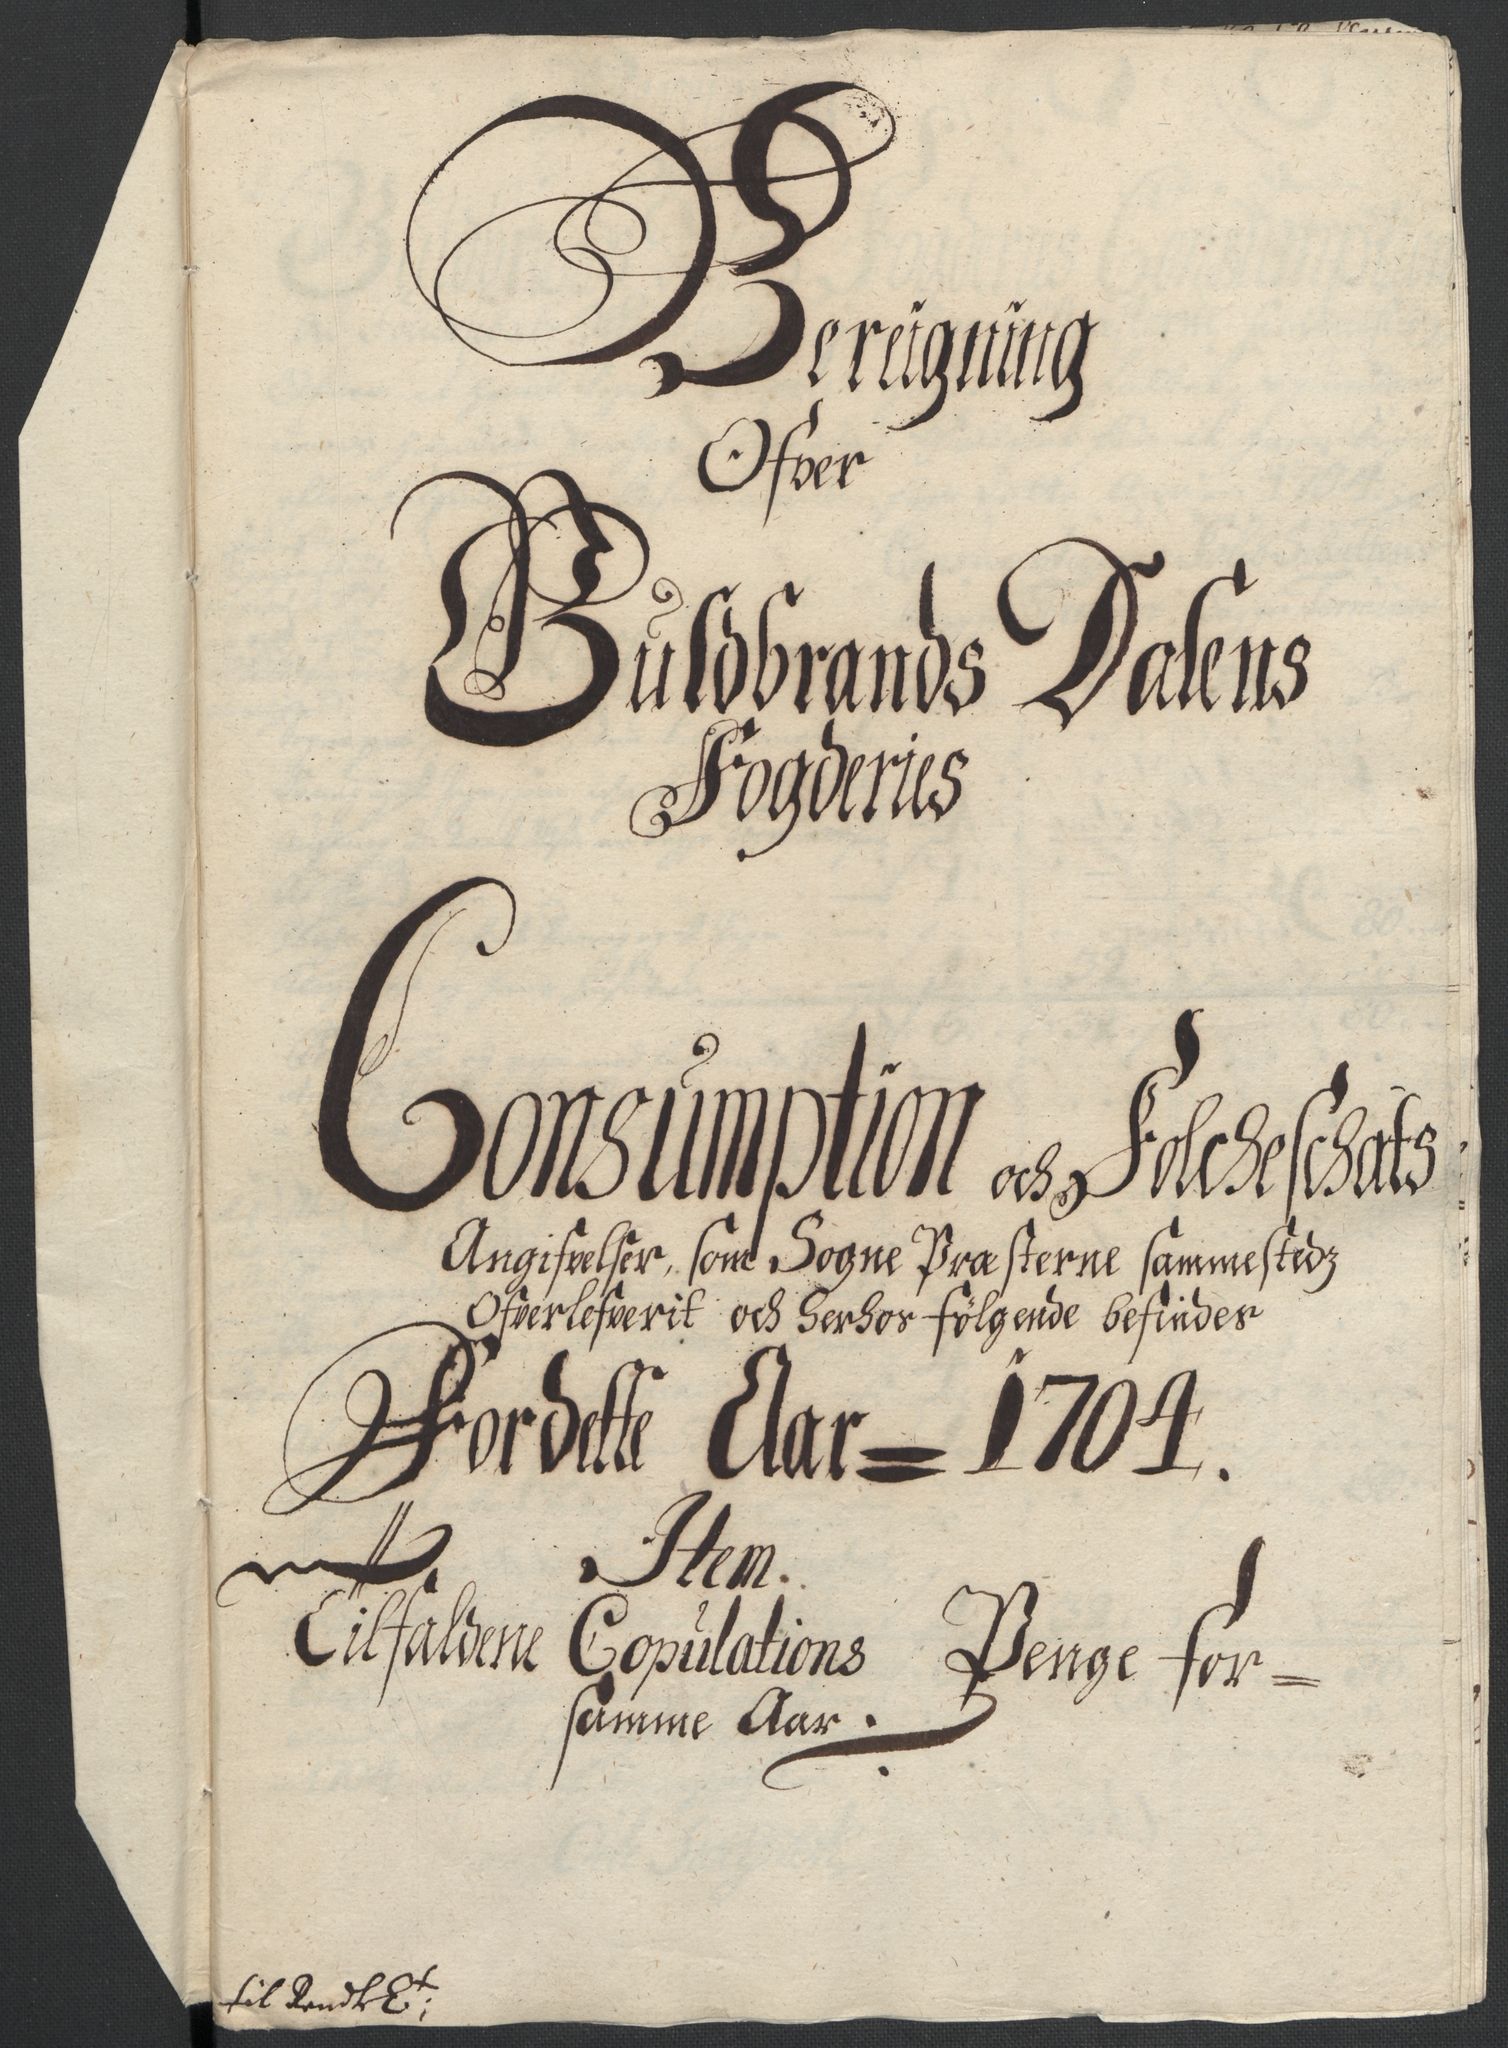 Bereigning
Ofver
Guldbrands Dalens
Fogderies
Consumption och Folcheschats
Angifvelser, som Sogne Præsterne sammestedz
Ofverlefverit och herhos følgende befindes
Fordette Aar = 1704.
Item.
Tilfaldene Copulations Penge for=
samme Aar.
til